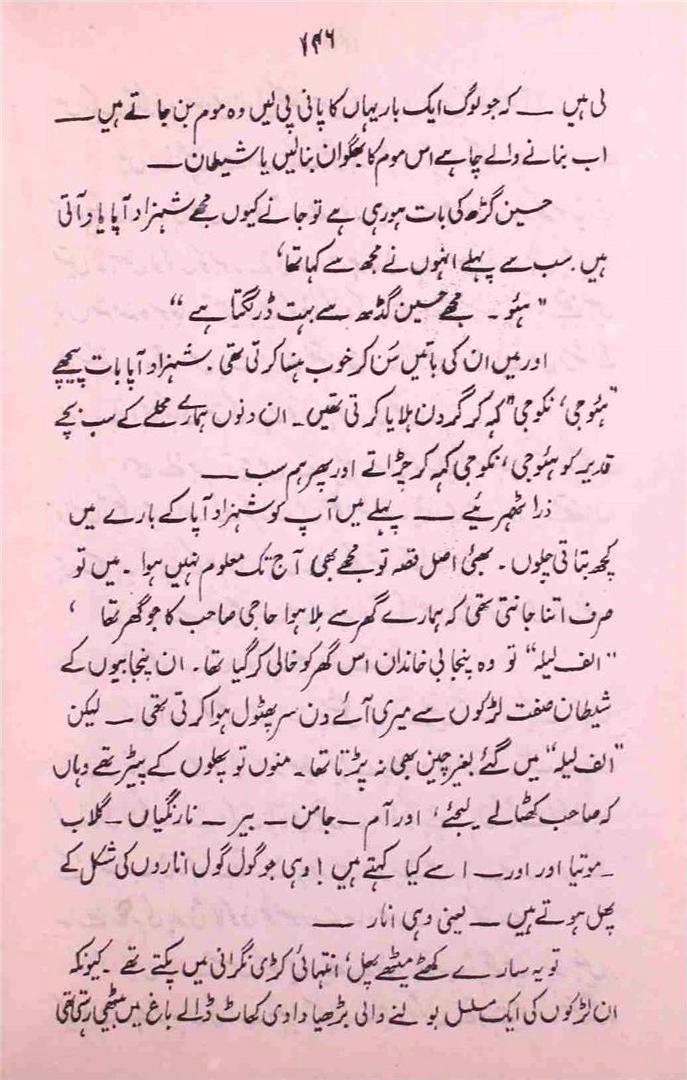 ۱۴۶
لی ہیں ــــ کہ جو لوگ ایک بار یہاں کا پانی پی لیں وہ موم بن جاتے ہیں ــــ
اب بنانے والے چاہے اس موم کا بھگوان بنا لیں یا شیطان ــــ
حسین گڑھ کی بات ہو رہی ہے تو جانے کیوں مجھے شہزاد آپا یاد آتی
ہیں۔ سب سے پہلے انہوں نے مجھ سے کہا تھا‘
"ہئو۔ مجھے حسین گڈھ سے بہت ڈر لگتا ہے“
اور میں ان کی باتیں سن کر خوب ہنسا کرتی تھی۔ شہزاد آپا بات پیچھے
"ہئوجی‘ نکوجی" کہہ کر گردن ہلایا کرتی تھیں۔ ان دنوں ہمارے محلے کے سب بچے
قدیر کو ہئوجی‘ نکوجی کہہ کر چڑاتے اور پھر ہم سب ــــ
ذرا ٹھہرئیے ــــ پہلے میں آپ کو شہزاد آپا کے بارے میں
کچھ بتاتی چلوں۔ بھئی اصل قصہ تو مجھے بھی آج تک معلوم نہیں ہوا۔ میں تو
صرف اتنا جانتی تھی کہ ہمارے گھر سے ملا ہوا حاجی صاحب کا جو گھر تھا‘
"الف لیلہ" تو وہ پنجابی خاندان اس گھر کو خالی کر گیا تھا۔ ان پنجابیوں کے
شیطان صفت لڑکوں سے میری آئے دن سر پھٹول ہوا کرتی تھی ــــ لیکن
"الف لیلہ" میں گئے بغیر چین بھی نہ پڑتا تھا۔ منوں تو پھلوں کے پیڑ تھے وہاں
کہ صاحب کٹھالے لیجئے‘ اور آم ــ جامن ــ بیر ــ نارنگیاں ــ گلاب
ــ موتیا اور اور ــ اسے کیا کہتے ہیں! وہی جو گول گول اناروں کی شکل کے
پھل ہوتے ہیں ــــ یعنی وہی انار ــــ
تو یہ سارے کھٹے میٹھے پھل‘ انتہائی کڑی نگرانی میں پکتے تھے۔ کیونکہ
ان لڑکوں کی ایک مسلسل بولنے والی بڑھیا دادی کھاٹ ڈالے باغ میں بیٹھی رہتی تھی